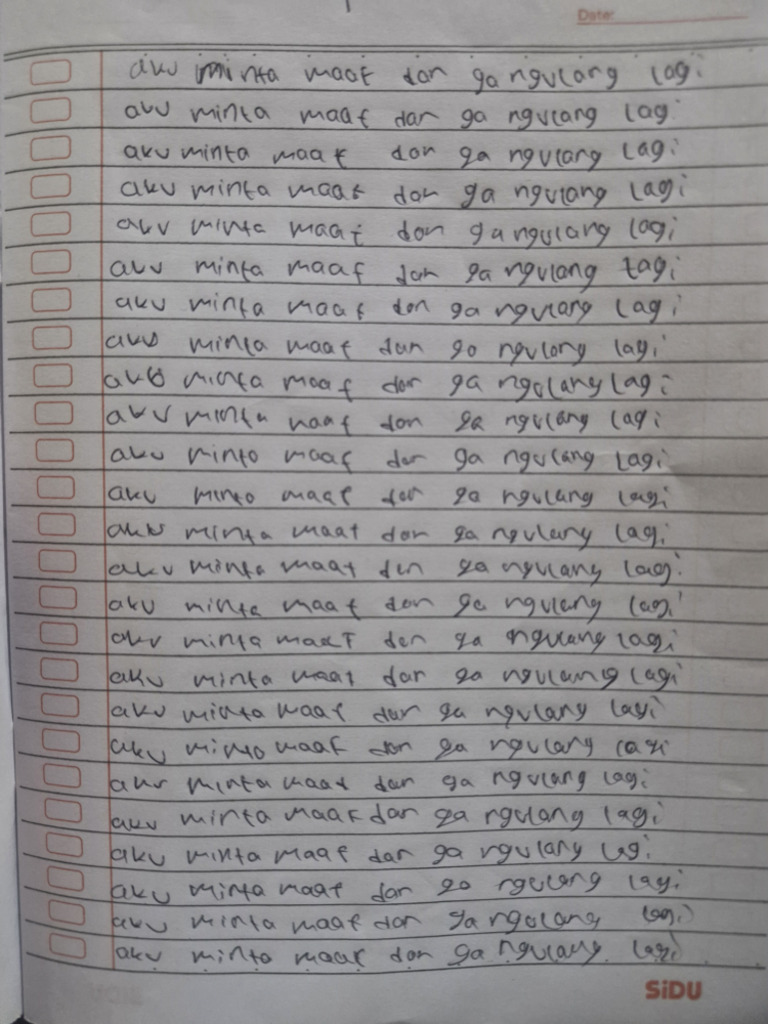 Date:
aku minta maaf dan ga ngulang lagi
aku minta maaf dan ga ngulang lagi
aku minta maaf dan ga ngulang lagi
aku minta maaf dan ga ngulang lagi
aku minta maaf dan ga ngulang lagi
aku minta maaf dan ga ngulang lagi
aku minta maaf dan ga ngulang lagi
aku minta maaf dan ga ngulang lagi
aku minta maaf dan ga ngulang lagi
aku minta maaf dan ga ngulang lagi
aku minta maaf dan ga ngulang lagi
aku minta maaf dan ga ngulang lagi
aku minta maaf dan ga ngulang lagi
aku minta maaf dan ga ngulang lagi
aku minta maaf dan ga ngulang lagi
aku minta maaf dan ga ngulang lagi
aku minta maaf dan ga ngulang lagi
aku minta maaf dan ga ngulang lagi
aku minta maaf dan ga ngulang lagi
aku minta maaf dan ga ngulang lagi
aku minta maaf dan ga ngulang lagi
aku minta maaf dan ga ngulang lagi
aku minta maaf dan ga ngulang lagi
aku minta maaf dan ga ngulang lagi
aku minta maaf dan ga ngulang lagi
SiDU